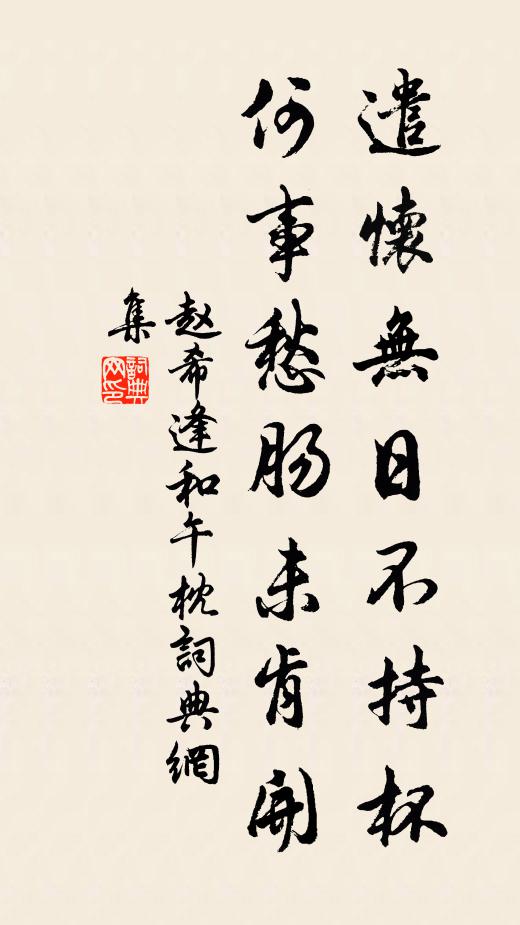 遣懷無日不持杯
何事愁肠未肯開
赵希逢和午枕詞典網
集
詞典网印